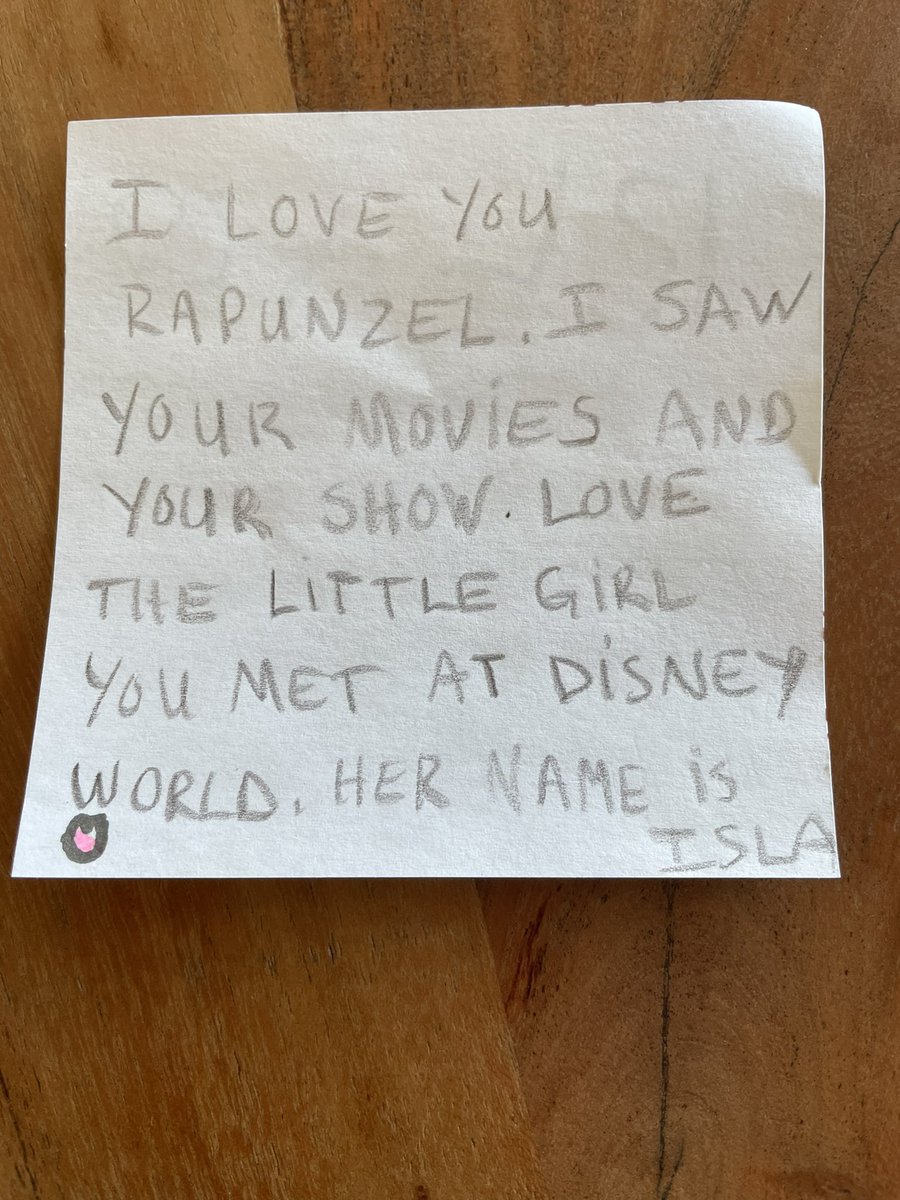 I LOVE YOU
RAPUNZEL. I SAW
YOUR MOVIES AND
YOUR SHOW. LOVE
THE LITTLE GIRL
YOU MET AT DISNEY
WORLD. HER NAME IS
ISLA